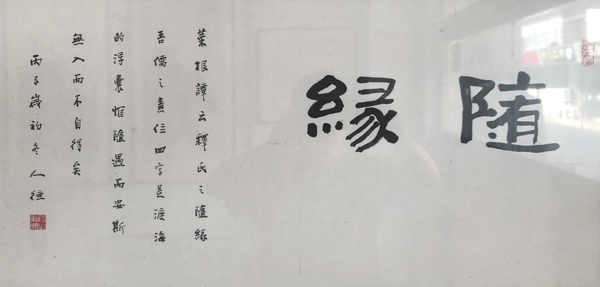 随緣
菜根譚云釋氏之随緣
吾儒之素位四字是渡海
的浮囊惟随遇而安斯
無入而不自得矣
丙子歲初冬人德